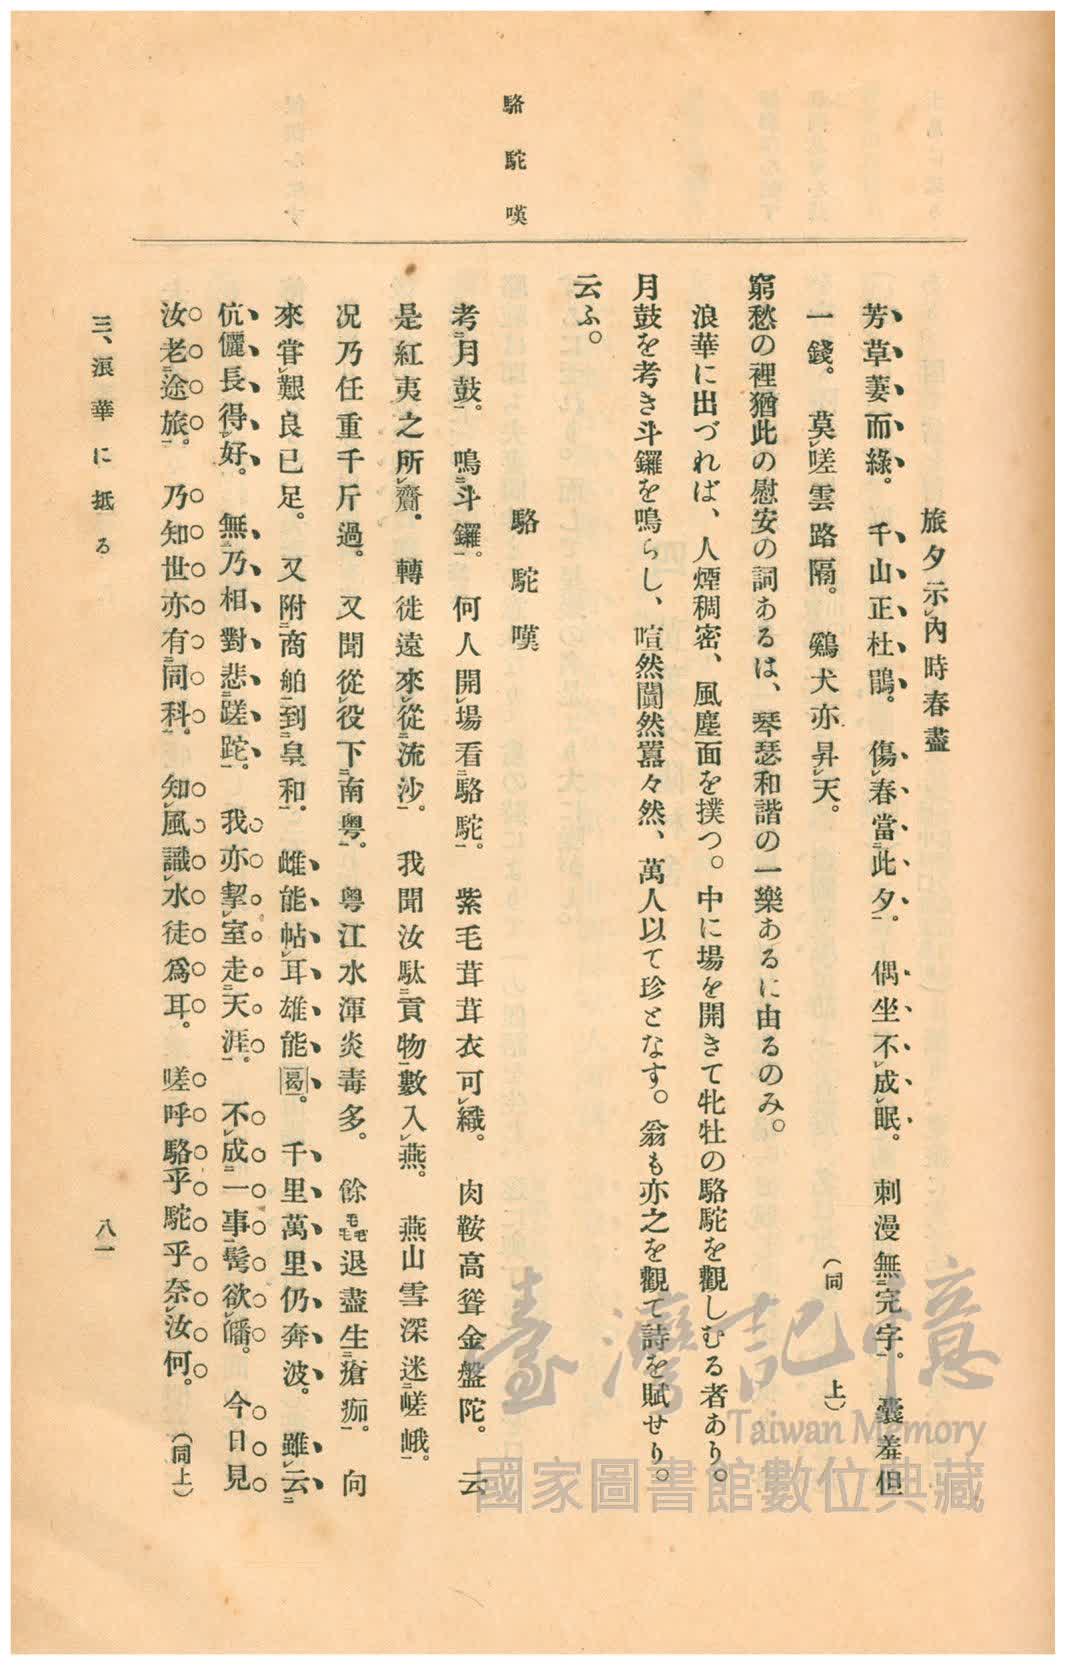 駱駝嘆
旅夕示レ內時春盡
芳草萋而綠。千山正杜鵑。傷レ春當二此夕一。偶坐不レ成レ眠。刺漫無二完字一。囊羞但
一錢。莫レ嗟雲路隔。鷄犬亦昇レ天。(同上)
窮愁の裡猶此の慰安の詞あるは、琴瑟和諧の一樂あるに由るのみ。
浪華に出づれば、人煙稠密、風塵面を撲つ。中に場を開きて牝牡の駱駝を觀しむる者あり。
月鼓を考き斗鑼を鳴らし、喧然闐然囂々然、萬人以て珍となす。翁も亦之を觀て詩を賦せり。
云ふ。
駱駝嘆
考二月鼓一。鳴二斗鑼一。何人開レ場看二駱駝一。紫毛茸茸衣可レ織。肉鞍高聳金盤陀。云
是紅夷之所レ齎。轉徙遠來從二流沙一。我聞汝馱二貢物一數入レ燕。燕山雪深迷二嵯峨一。
况乃任重千斤過。又聞從レ役下二南粤一。粤江水渾炎毒多。餘毳退盡生二瘡痂一。向
來甞レ艱良已足。又附二商舶一到二皇和一。雌能帖レ耳雄能㔠。千里萬里仍奔波。雖レ云二
伉儷長得一レ好。無三乃相對悲二蹉跎一。我亦挈レ室走二天涯一。不レ成二一事一髩欲レ皤。今日見
汝老二途旅一。乃知世亦有二同科一。知レ風識レ水徒爲耳。嗟呼駱乎駝乎奈レ汝何。(同上)
三、浪華に抵る
八一
臺灣記憶
Taiwan Memory
國家圖書館數位典藏